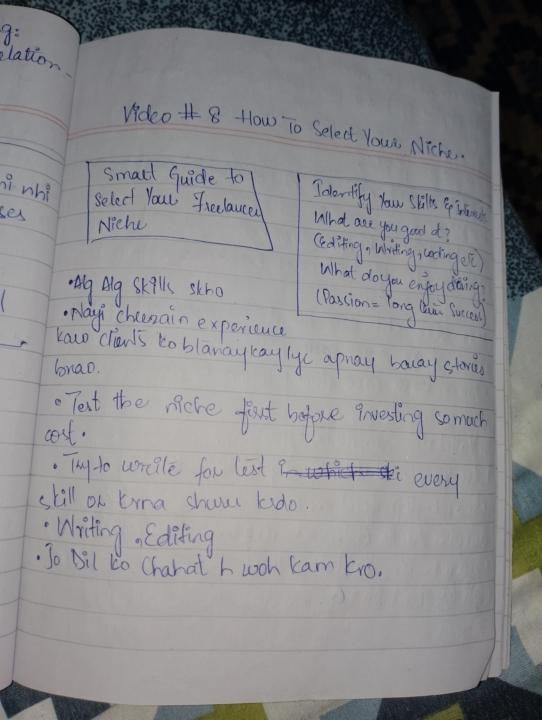 g:
elation-
ni nhi
ses
Video # 8 How To Select Your Niche.
Small Guide to
Select Your Freelancer
Niche
Identify Your Skills &
What are you good at?
(editing, Writing, coding etc)
What do you enjoy doing:
(Passion = long Success)
• Alg Alg Skills skho
• Nayi cheezain experience
karo clients ko blanay kay lye apnay baray stories
bnao.
• Test the niche first before investing so much
cost.
• Try to write for test every
skill or krna shuru krdo.
• Writing • Editing
• Jo Dil ko chahat h woh kam kro.